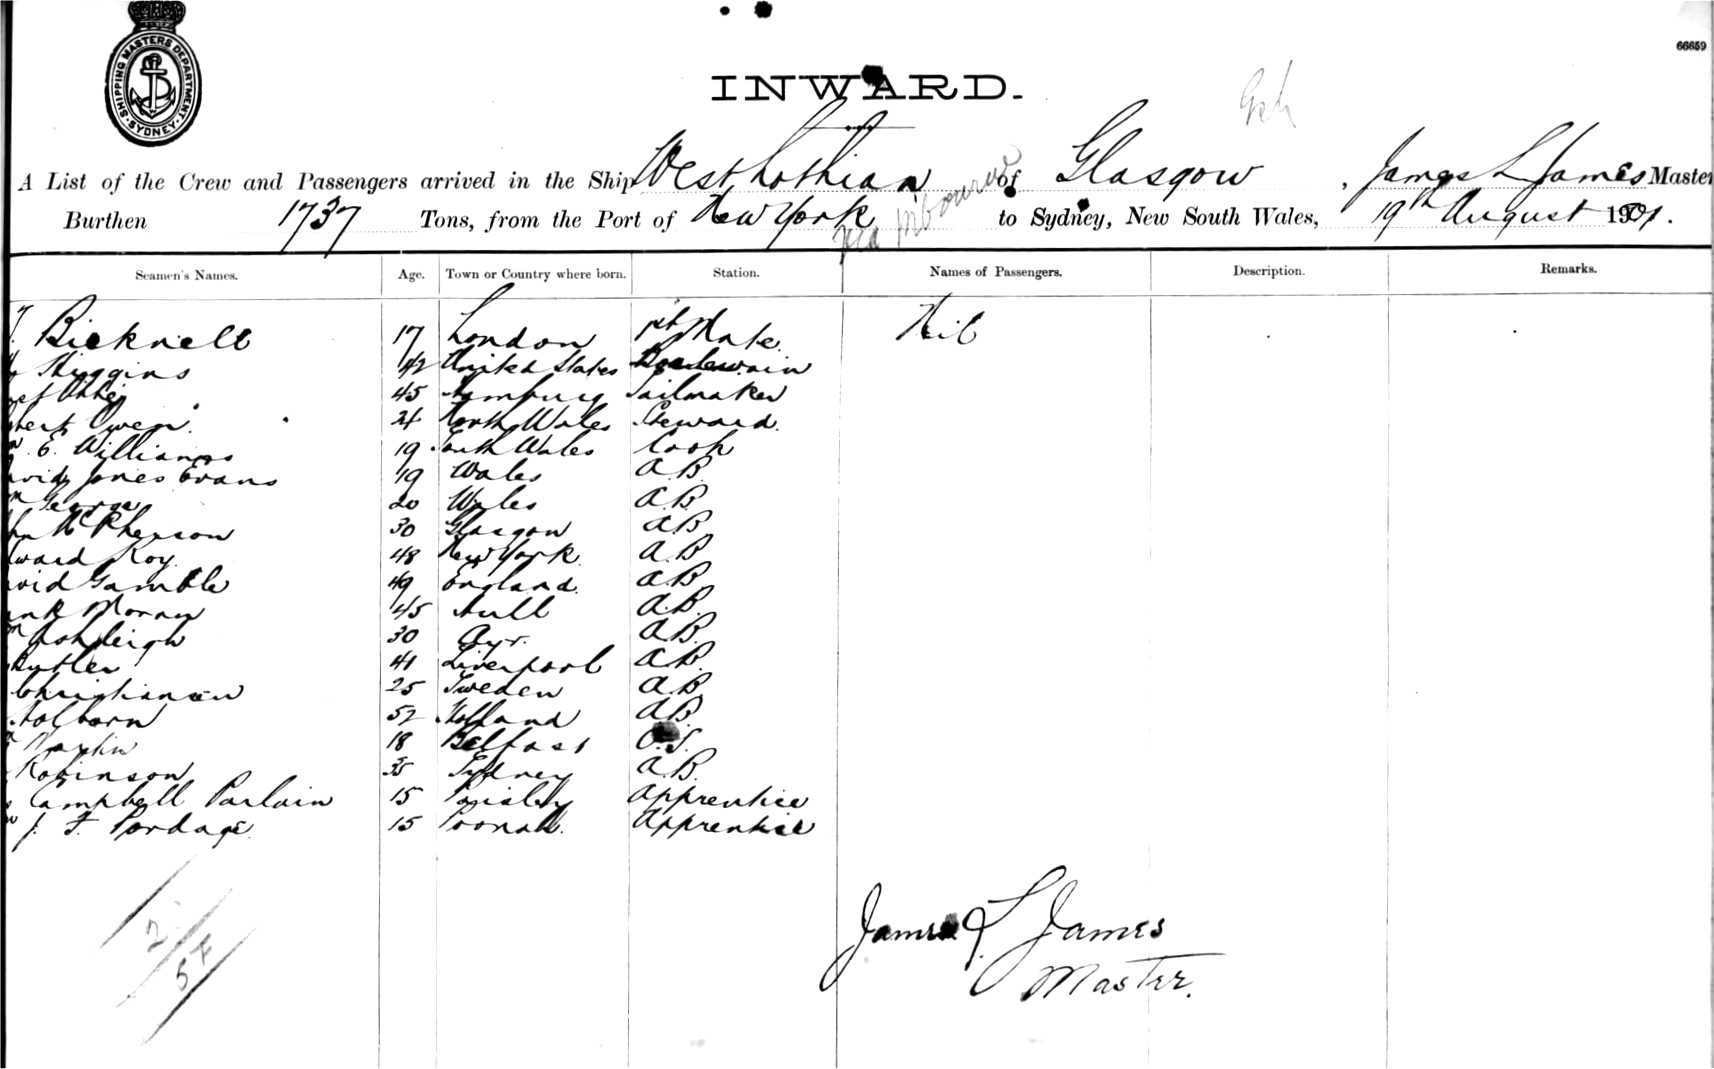 SHIPPING MASTERS DEPARTMENT
SYDNEY
66659
INWARD.
A List of the Crew and Passengers arrived in the Ship West Lothian of Glasgow, James L James Master
Burthen 1737 Tons, from the Port of New York via Melbourne to Sydney, New South Wales, 19th August 1901.
Seamen's Names. Age. Town or Country where born. Station. Names of Passengers. Description. Remarks.
Bicknell 17 London 1st Mate. Nil
Higgins 42 United States Boatswain
45 Hamburg Sailmaker
Owen. 24 North Wales Steward.
E. Williams 19 South Wales Cook
Jones Evans 19 Wales A.B.
George 20 Wales A.B.
McPherson 30 Glasgow A.B.
Roy. 48 New York A.B
Gamble 49 England. A.B
Moran 45 Hull A.B.
Ashleigh 30 Ayr. A.B.
Butler 41 Liverpool A.B.
Christiansen 25 Sweden A.B
Holborn 52 Holland A.B.
Martin 18 Belfast O.S.
Robinson 35 Sydney A.B.
Campbell Parlain 15 Paisley Apprentice
J. F. Pordage. 15 Poonah. Apprentice
James L James
Master.
2
54